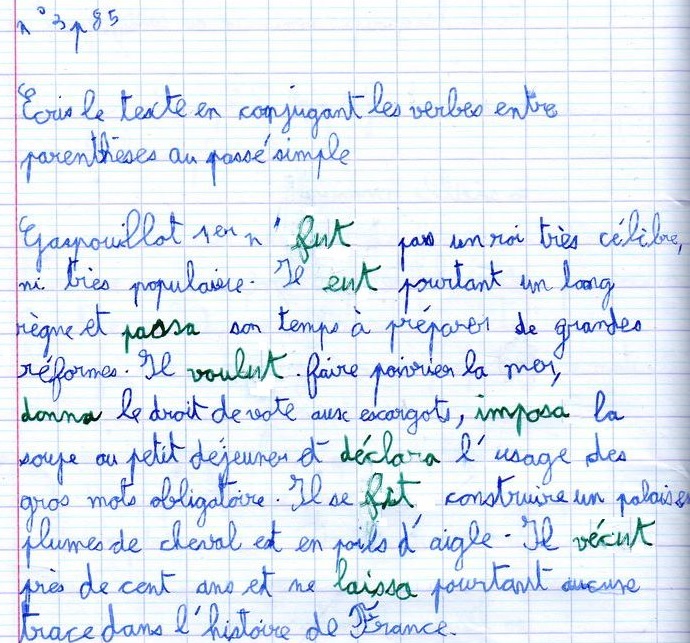 n° 3 p 85
Ecris le texte en conjugant les verbes entre
parenthèses au passé simple
Gaspouillot 1er n' fut pas un roi très célèbre,
ni très populaire. Il eut pourtant un long
règne et passa son temps à préparer de grandes
réformes. Il voulut faire poivrier la mer,
donna le droit de vote aux escargots, imposa la
soupe au petit déjeuner et déclara l'usage des
gros mots obligatoire. Il se fit construire un palais en
plumes de cheval et en poils d'aigle. Il vécut
près de cent ans et ne laissa pourtant aucune
trace dans l'histoire de France.